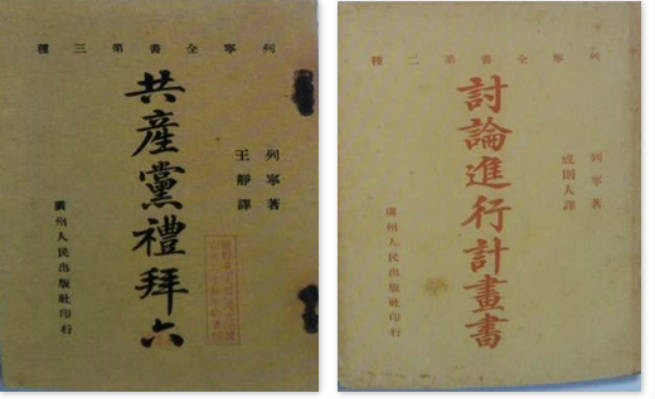 列寧全書第三種
列寧著
王靜譯
共產黨禮拜六
廣州人民出版社印行
列寧全書第二種
列寧著
成則人譯
討論進行計畫書
廣州人民出版社印行